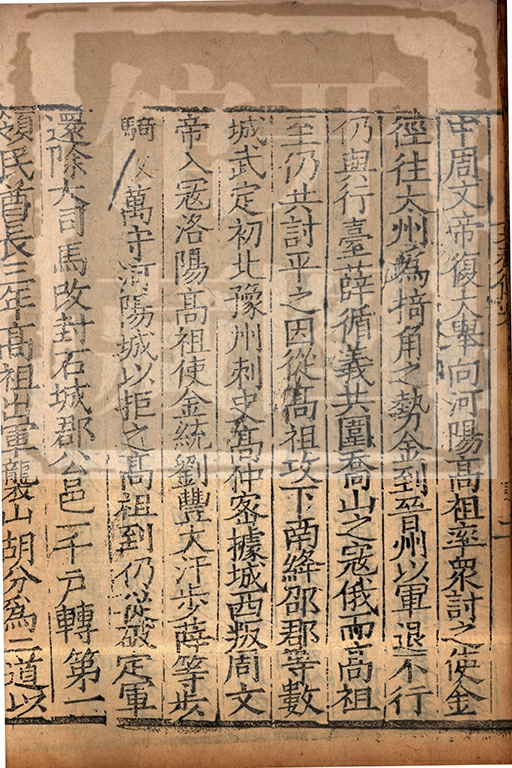 中周文帝復大舉向河陽髙祖率衆討之使金
徑往大州為掎角之勢金到晉州以軍退不行
仍與行臺薛循義共圍喬山之寇俄而髙祖
至仍共討平之因從髙祖攻下南絳邵郡等數
城武定初北豫州刺史髙仲密據城西叛周文
帝入寇洛陽髙祖使金統劉豐大汗步薛等步
騎數萬守河陽城以拒之髙祖到仍從破定軍
還除大司馬改封石城郡公邑一千戸轉第一
領民酋長三年髙祖出軍襲山胡分為二道以